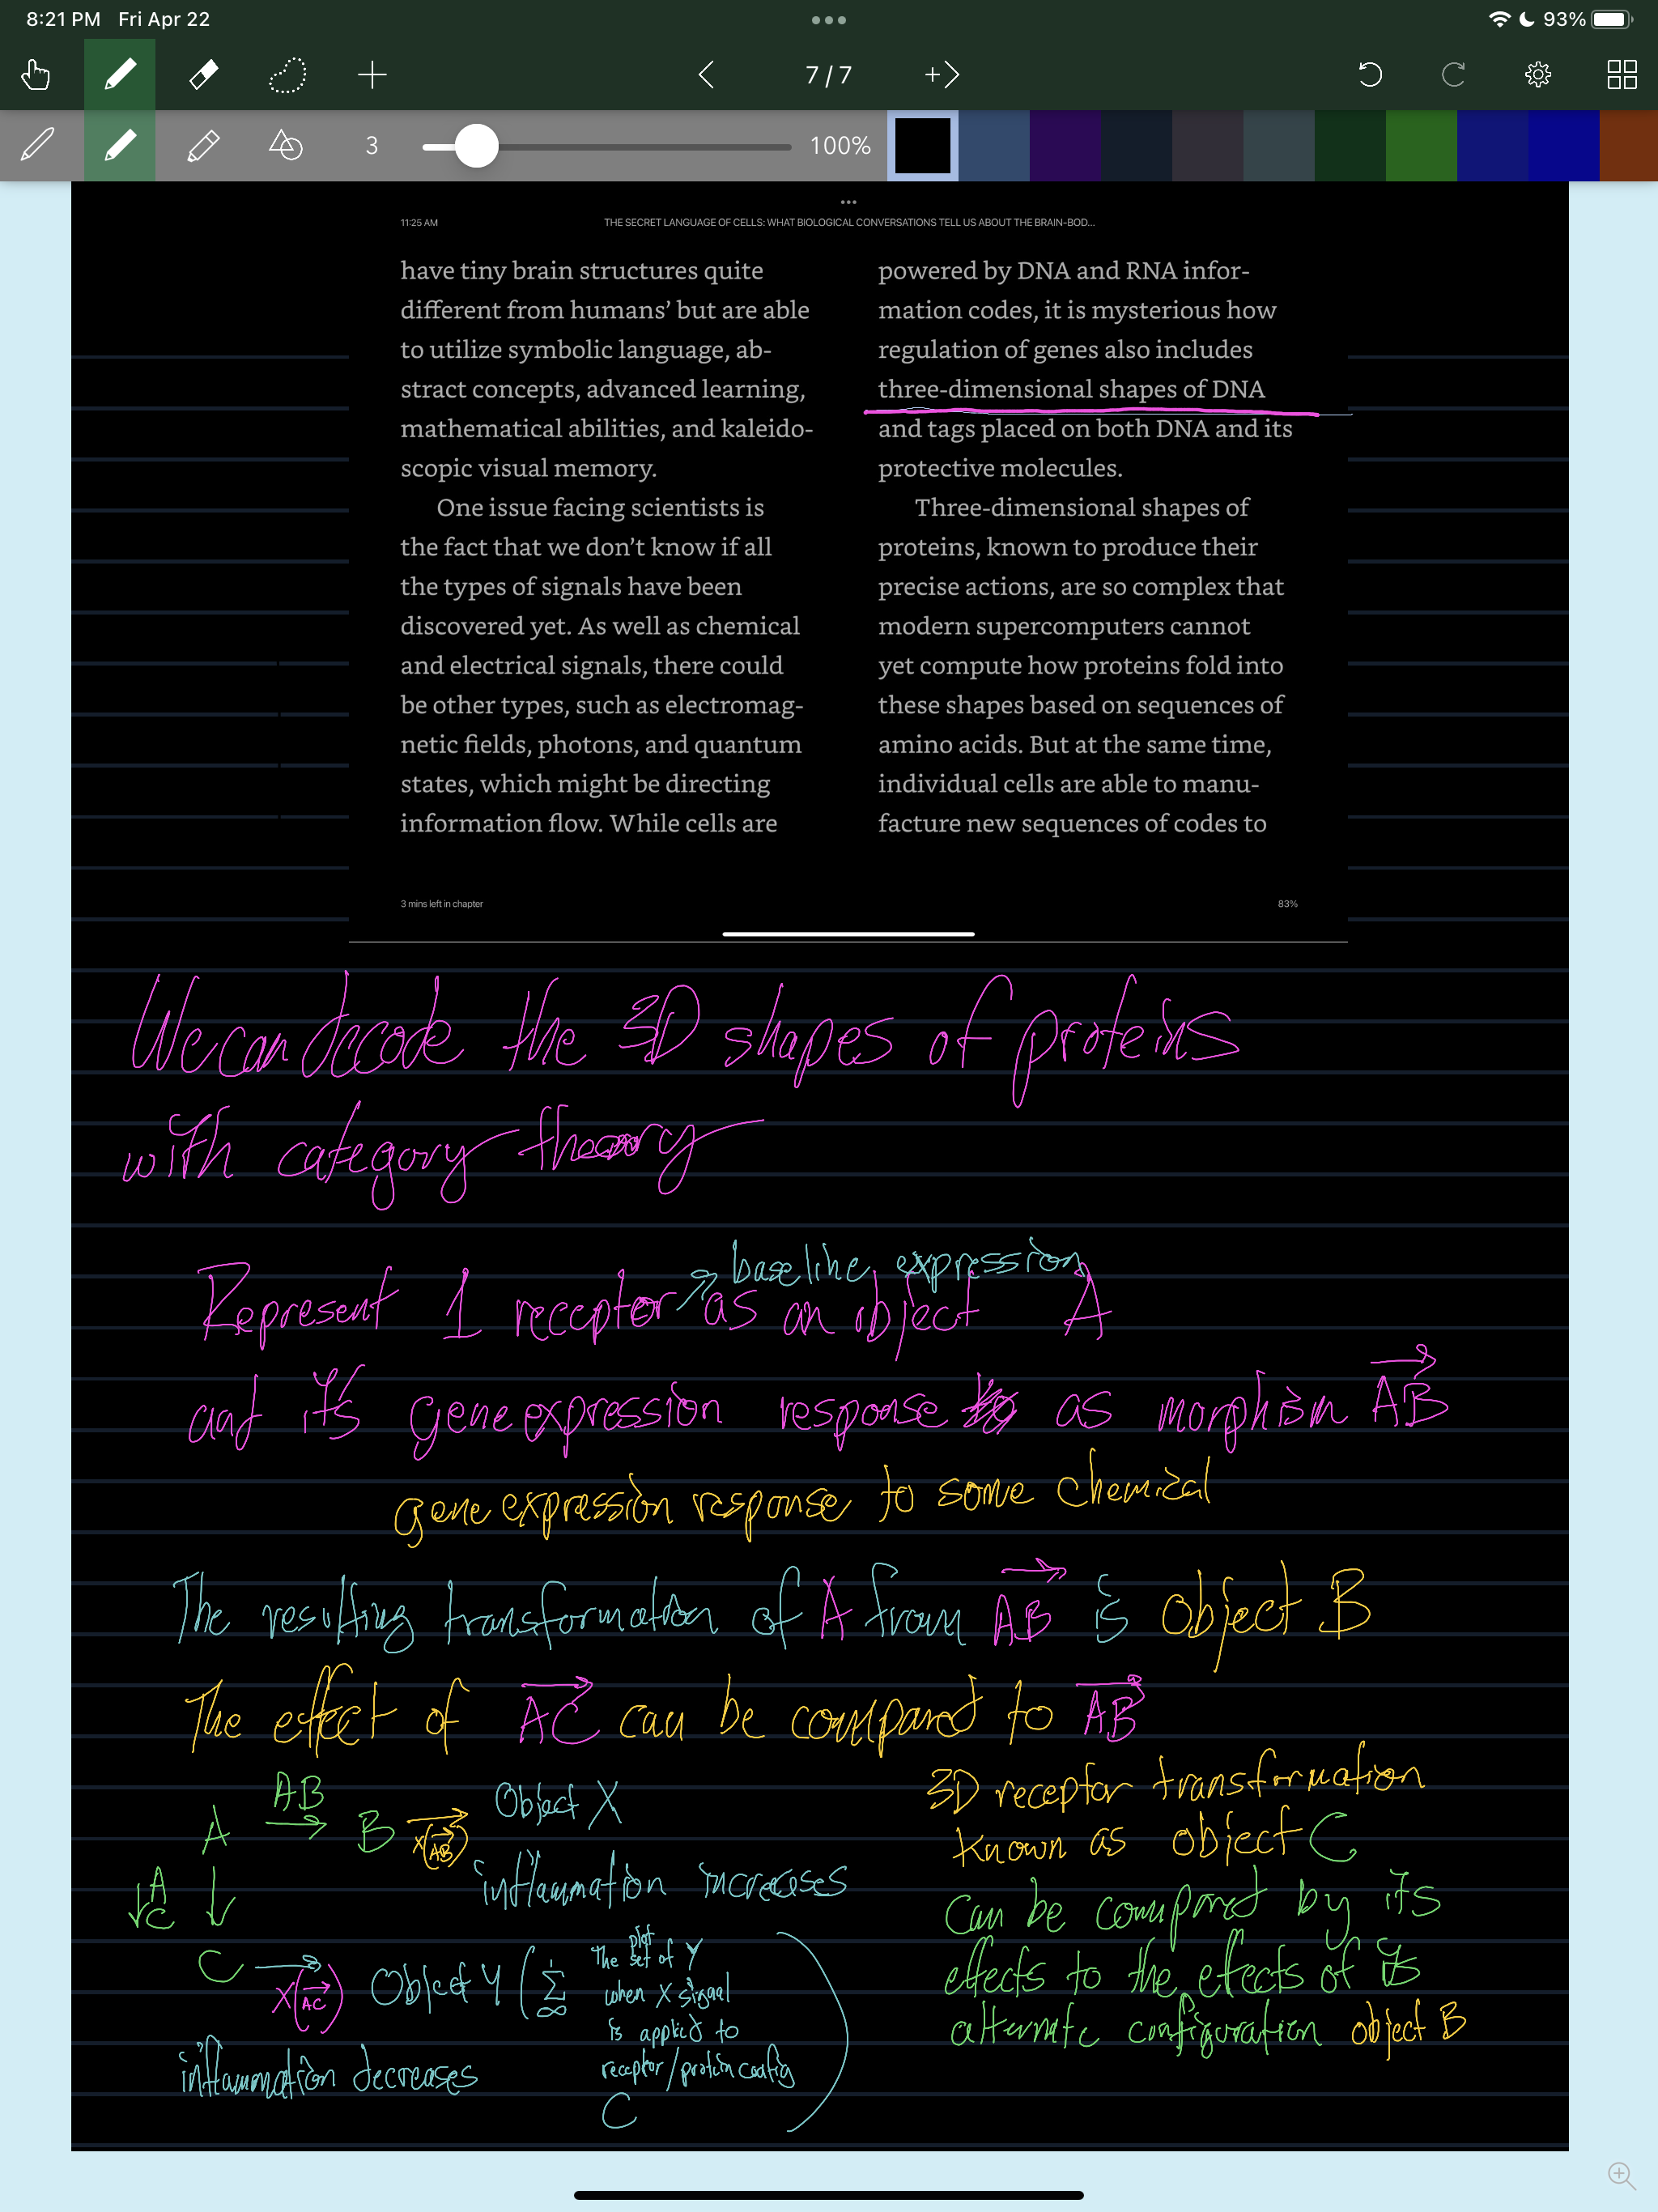 8:21 PM Fri Apr 22
93%
7/7
3
100%
11:25 AM
THE SECRET LANGUAGE OF CELLS: WHAT BIOLOGICAL CONVERSATIONS TELL US ABOUT THE BRAIN-BOD...
have tiny brain structures quite
different from humans’ but are able
to utilize symbolic language, ab-
stract concepts, advanced learning,
mathematical abilities, and kaleido-
scopic visual memory.
One issue facing scientists is
the fact that we don’t know if all
the types of signals have been
discovered yet. As well as chemical
and electrical signals, there could
be other types, such as electromag-
netic fields, photons, and quantum
states, which might be directing
information flow. While cells are
powered by DNA and RNA infor-
mation codes, it is mysterious how
regulation of genes also includes
three-dimensional shapes of DNA
and tags placed on both DNA and its
protective molecules.
Three-dimensional shapes of
proteins, known to produce their
precise actions, are so complex that
modern supercomputers cannot
yet compute how proteins fold into
these shapes based on sequences of
amino acids. But at the same time,
individual cells are able to manu-
facture new sequences of codes to
3 mins left in chapter
83%
We can decode the 3D shapes of proteins
with category theory
baseline expression
Represent 1 receptor as an object A
and it's gene expression response as morphism AB
gene expression response to some chemical
The resulting transformation of A from AB is object B
The effect of AC can be compared to AB
AB
A → B X(AB) Object X
inflammation increases
AC
C → X(AC) Object Y ( Σ ∞
The plot set of Y
when X signal
is applied to
receptor/protein config
C )
inflammation decreases
3D receptor transformation
known as object C
Can be compared by its
effects to the effects of its
alternate configuration object B